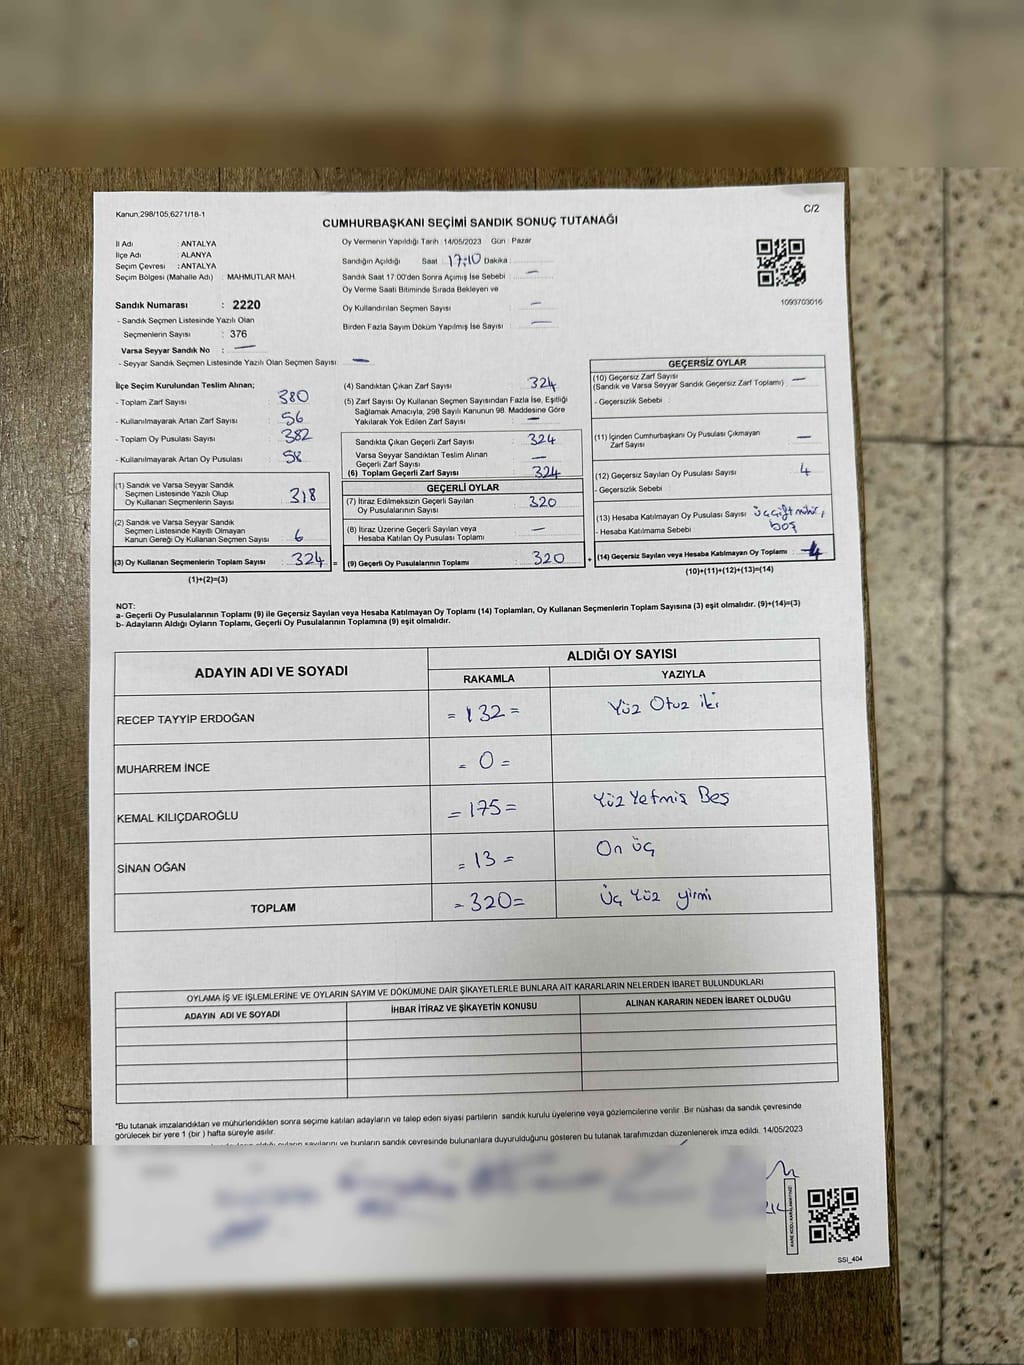 Kanun,298/105,6271/18-1
C/2
CUMHURBAŞKANI SEÇİMİ SANDIK SONUÇ TUTANAĞI
İl Adı : ANTALYA
İlçe Adı : ALANYA
Seçim Çevresi : ANTALYA
Seçim Bölgesi (Mahalle Adı) : MAHMUTLAR MAH.
Sandık Numarası : 2220
- Sandık Seçmen Listesinde Yazılı Olan
Seçmenlerin Sayısı : 376
Varsa Seyyar Sandık No : —
- Seyyar Sandık Seçmen Listesinde Yazılı Olan Seçmen Sayısı : —
Oy Vermenin Yapıldığı Tarih : 14/05/2023 Gün : Pazar
Sandığın Açıldığı Saat 17:10 Dakika
Sandık Saat 17:00'den Sonra Açımış İse Sebebi : —
Oy Verme Saati Bitiminde Sırada Bekleyen ve
Oy Kullandırılan Seçmen Sayısı : —
Birden Fazla Sayım Döküm Yapılmış İse Sayısı : —
1093703016
İlçe Seçim Kurulundan Teslim Alınan;
- Toplam Zarf Sayısı : 380
- Kullanılmayarak Artan Zarf Sayısı : 56
- Toplam Oy Pusulası Sayısı : 382
- Kullanılmayarak Artan Oy Pusulası : 58
(1) Sandık ve Varsa Seyyar Sandık
Seçmen Listesinde Yazılı Olup
Oy Kullanan Seçmenlerin Sayısı : 318
(2) Sandık ve Varsa Seyyar Sandık
Seçmen Listesinde Kayıtlı Olmayan
Kanun Gereği Oy Kullanan Seçmen Sayısı : 6
(3) Oy Kullanan Seçmenlerin Toplam Sayısı : 324 =
(1)+(2)=(3)
(4) Sandıktan Çıkan Zarf Sayısı : 324
(5) Zarf Sayısı Oy Kullanan Seçmen Sayısından Fazla İse, Eşitliği
Sağlamak Amacıyla, 298 Sayılı Kanunun 98. Maddesine Göre
Yakılarak Yok Edilen Zarf Sayısı : —
Sandıkta Çıkan Geçerli Zarf Sayısı : 324
Varsa Seyyar Sandıktan Teslim Alınan
Geçerli Zarf Sayısı : —
(6) Toplam Geçerli Zarf Sayısı : 324
GEÇERLİ OYLAR
(7) İtiraz Edilmeksizin Geçerli Sayılan
Oy Pusulalarının Sayısı : 320
(8) İtiraz Üzerine Geçerli Sayılan veya
Hesaba Katılan Oy Pusulası Toplamı : —
(9) Geçerli Oy Pusulalarının Toplamı : 320 +
GEÇERSİZ OYLAR
(10) Geçersiz Zarf Sayısı
(Sandık ve Varsa Seyyar Sandık Geçersiz Zarf Toplamı) : —
- Geçersizlik Sebebi :
(11) İçinden Cumhurbaşkanı Oy Pusulası Çıkmayan
Zarf Sayısı : —
(12) Geçersiz Sayılan Oy Pusulası Sayısı : 4
- Geçersizlik Sebebi :
(13) Hesaba Katılmayan Oy Pusulası Sayısı : üç çift mühür,
- Hesaba Katılmama Sebebi : boş
(14) Geçersiz Sayılan veya Hesaba Katılmayan Oy Toplamı : 4
(10)+(11)+(12)+(13)=(14)
NOT:
a- Geçerli Oy Pusulalarının Toplamı (9) ile Geçersiz Sayılan veya Hesaba Katılmayan Oy Toplamı (14) Toplamları, Oy Kullanan Seçmenlerin Toplam Sayısına (3) eşit olmalıdır. (9)+(14)=(3)
b- Adayların Aldığı Oyların Toplamı, Geçerli Oy Pusulalarının Toplamına (9) eşit olmalıdır.
ADAYIN ADI VE SOYADI
ALDIĞI OY SAYISI
RAKAMLA YAZIYLA
RECEP TAYYİP ERDOĞAN = 132 = Yüz Otuz iki
MUHARREM İNCE = 0 =
KEMAL KILIÇDAROĞLU = 175 = Yüz Yetmiş Beş
SİNAN OĞAN = 13 = On üç
TOPLAM = 320 = Üç Yüz yirmi
OYLAMA İŞ VE İŞLEMLERİNE VE OYLARIN SAYIM VE DÖKÜMÜNE DAİR ŞİKAYETLERLE BUNLARA AİT KARARLARIN NELERDEN İBARET BULUNDUKLARI
ADAYIN ADI VE SOYADI İHBAR İTİRAZ VE ŞİKAYETİN KONUSU ALINAN KARARIN NEDEN İBARET OLDUĞU
*Bu tutanak imzalandıktan ve mühürlendikten sonra seçime katılan adayların ve talep eden siyasi partilerin sandık kurulu üyelerine veya gözlemcilerine verilir. Bir nüshası da sandık çevresinde
görülecek bir yere 1 (bir ) hafta süreyle asılır.
sayılarını ve bunların sandık çevresinde bulunanlara duyurulduğunu gösteren bu tutanak tarafımızdan düzenlenerek imza edildi. 14/05/2023
SSI_404